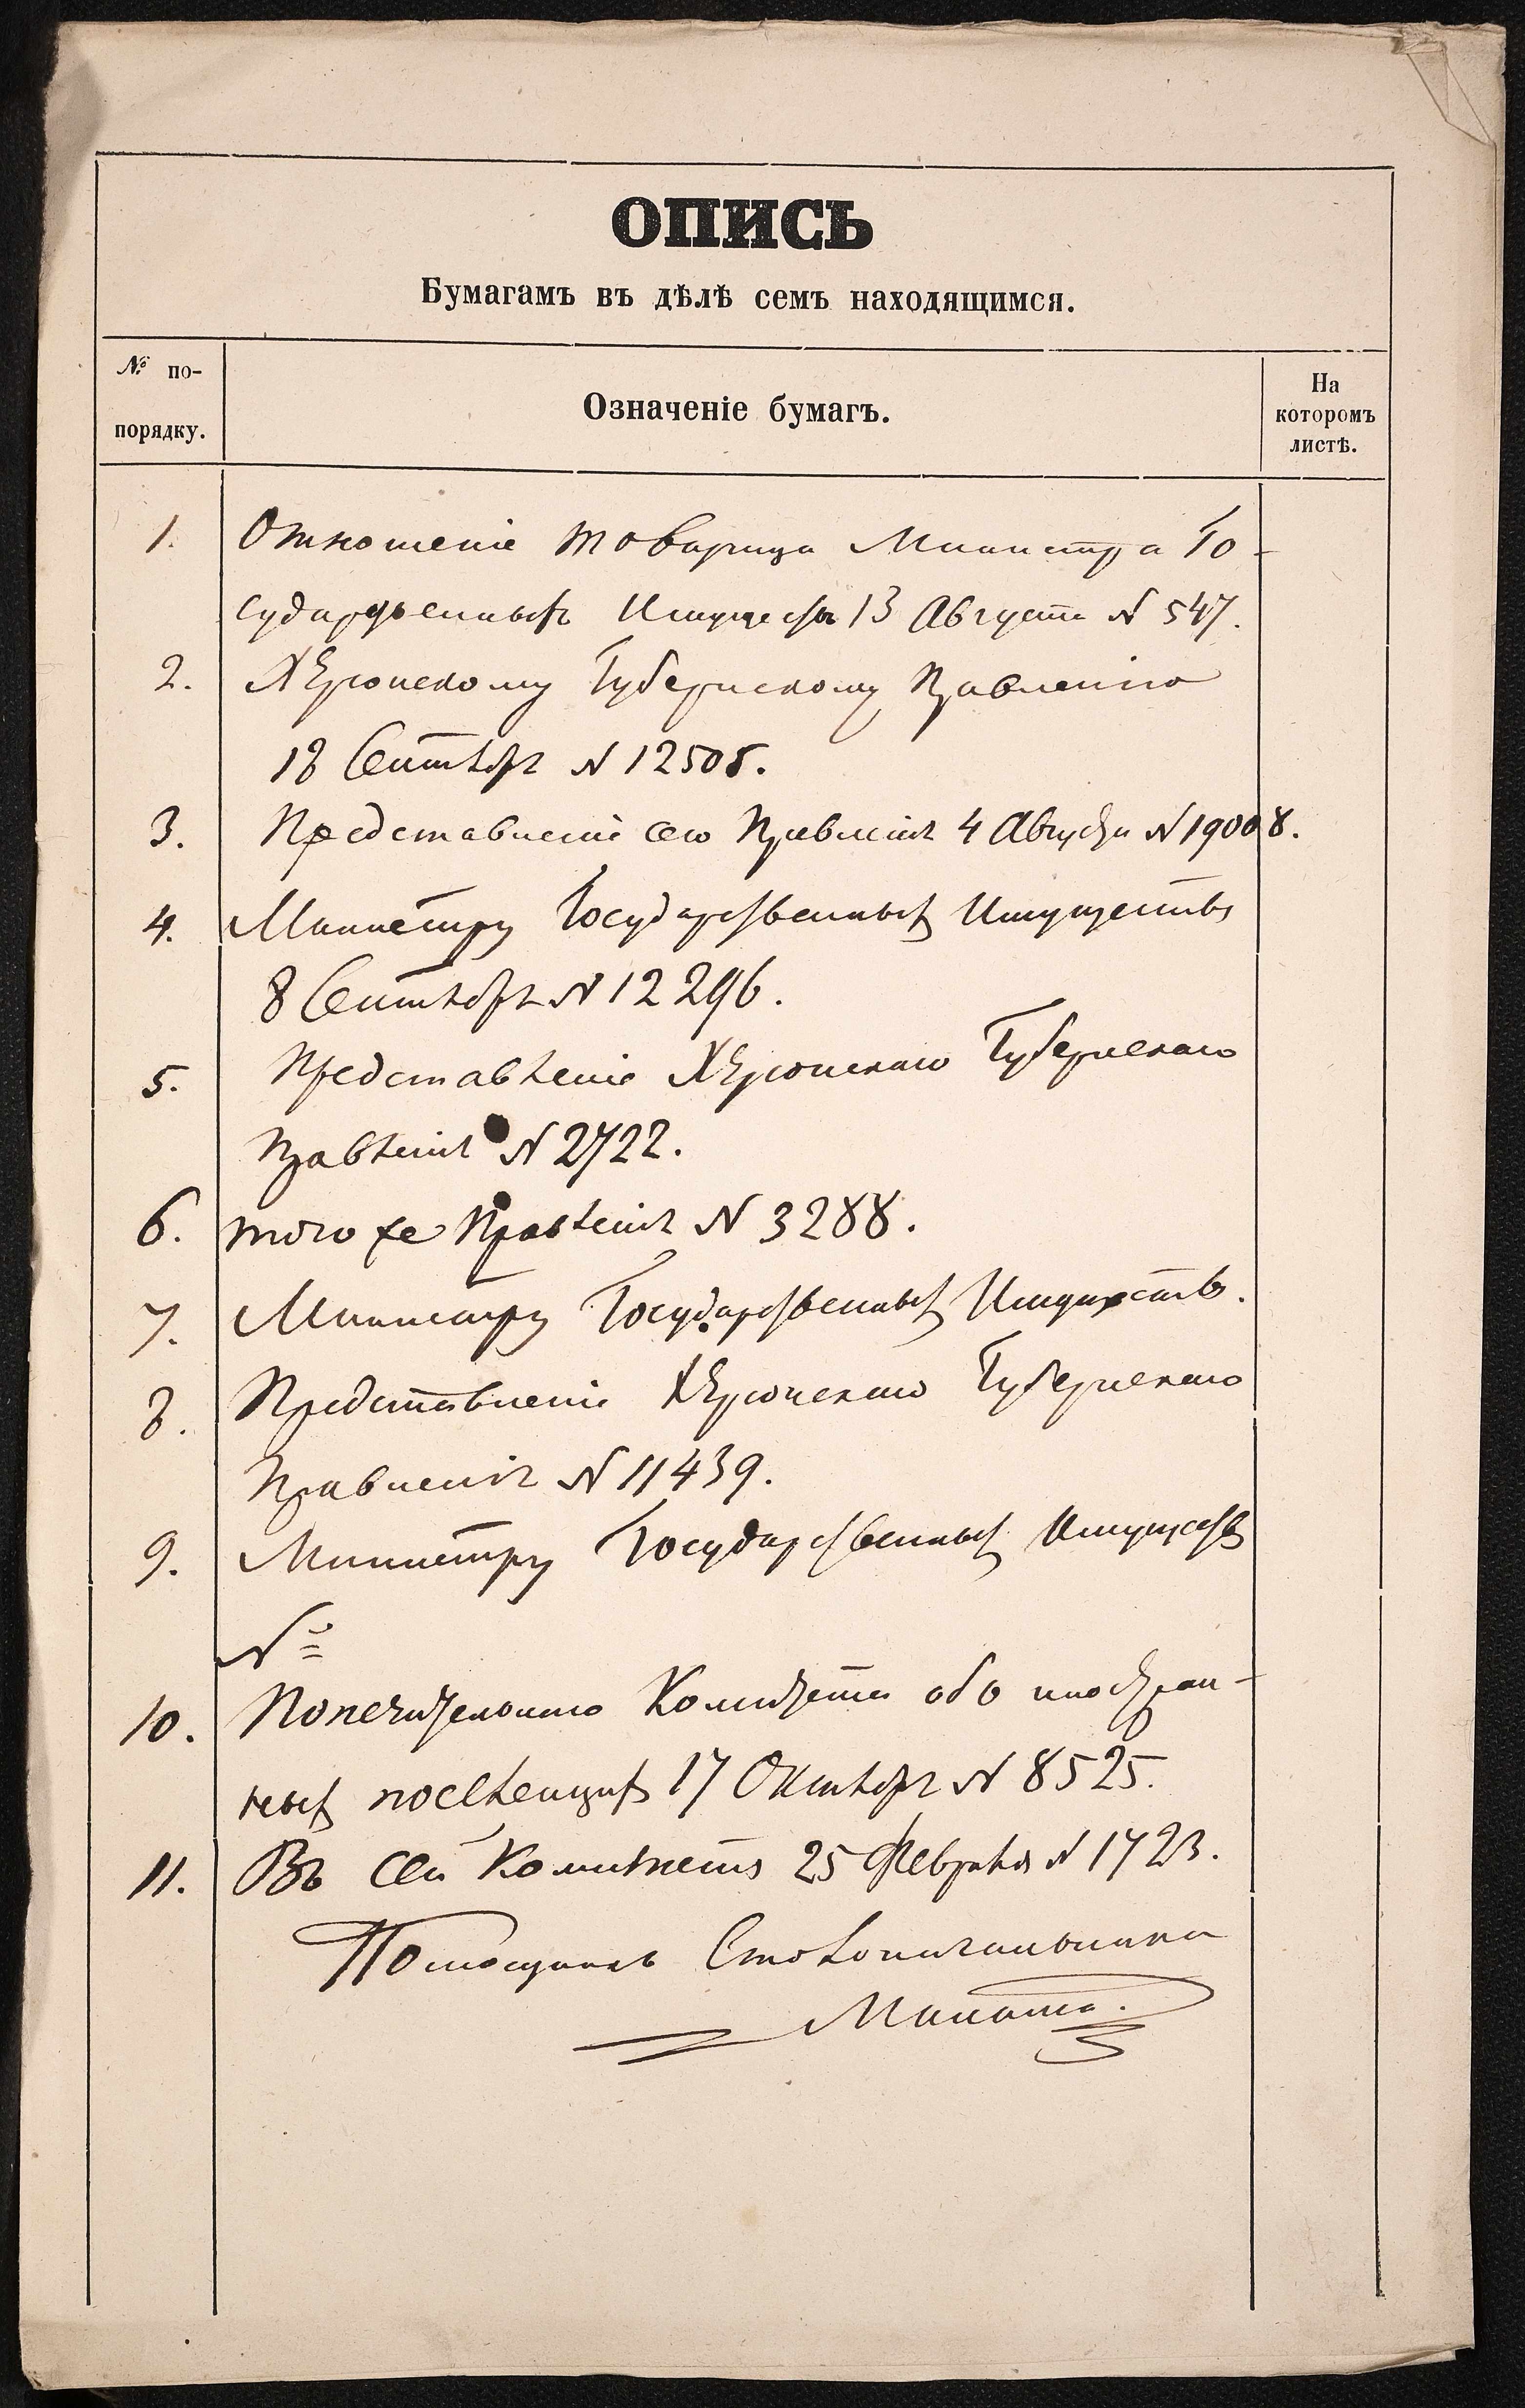 ОПИСЬ
Бумагамъ въ дѣлѣ семъ находящимся.
№ по-
порядку.
Означеніе бумагъ.
На
которомъ
листѣ.
1. Отношеніе товарища Министра Го-
сударственныхъ Имуществъ 13 Августа N 547.
2. Херсонскому Губернскому Правленію
18 Сентября N 12505.
3. Представленіе сего Правленія 4 Августа N 19008.
4. Министру Государственныхъ Имуществъ
8 Сентября N 12296.
5. Представленіе Херсонскаго Губернскаго
Правленія N 2722.
6. того же Правленія N 3288.
7. Министру Государственныхъ Имуществъ.
8. Представленіе Херсонскаго Губернскаго
Правленія N 11439.
9. Министру Государственныхъ Имуществъ
№
10. Попечительнаго Комитета объ иностран-
ныхъ поселенцахъ 17 Октября N 8525.
11. Въ сей Комитетъ 25 Февраля N 1723.
Помощникъ Столоначальника